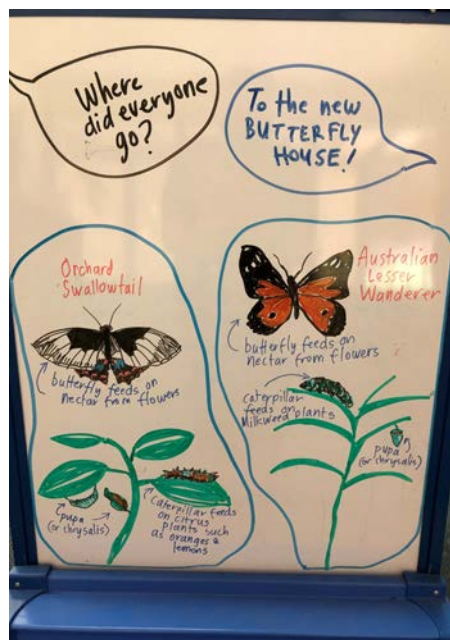 Where
did everyone
go?
To the new
BUTTERFLY
HOUSE!
Orchard
Swallowtail
butterfly feeds on
nectar from flowers
pupa
(or chrysalis)
caterpillar feeds
on citrus
plants such
as oranges &
lemons
Australian
Lesser
Wanderer
butterfly feeds on
nectar from flowers
caterpillar
feeds on
Milkweed plants
pupa
(or chrysalis)